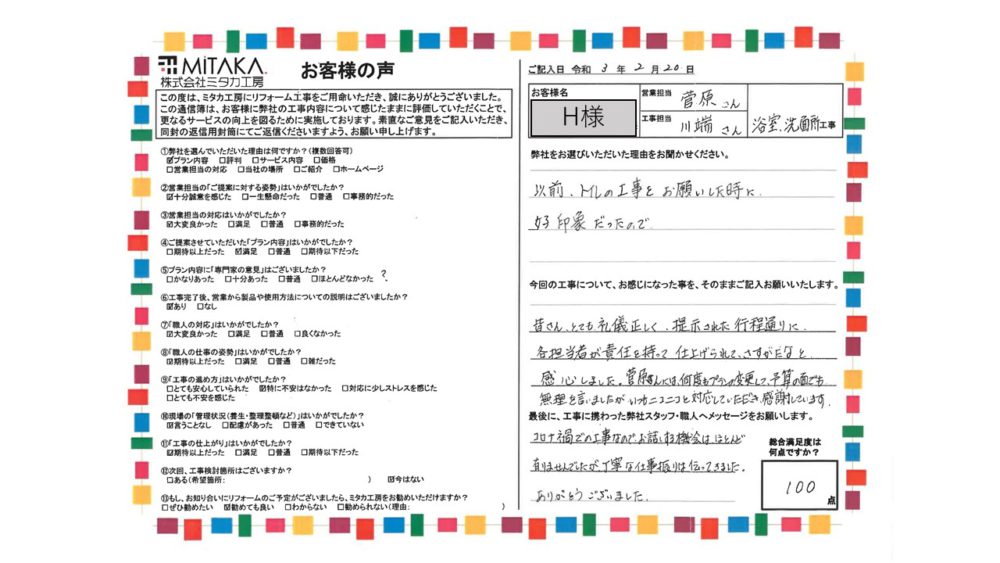 MITAKA
株式会社ミタカ工房
お客様の声
この度は、ミタカ工房にリフォーム工事をご用命いただき、誠にありがとうございました。
この通信簿は、お客様に弊社の工事内容について感じたままに評価していただくことで、
更なるサービスの向上を図るために実施しております。素直なご意見をご記入いただき、
同封の返信用封筒にてご返信くださいますよう、お願い申し上げます。
①弊社を選んでいただいた理由は何ですか？（複数回答可）
☑プラン内容 □評判 □サービス内容 □価格
□営業担当の対応 □当社の場所 □ご紹介 □ホームページ
②営業担当の「ご提案に対する姿勢」はいかがでしたか？
☑十分誠意を感じた □一生懸命だった □普通 □事務的だった
③営業担当の対応はいかがでしたか？
☑大変良かった □満足 □普通 □事務的だった
④ご提案させていただいた「プラン内容」はいかがでしたか？
□期待以上だった ☑満足 □普通 □期待以下だった
⑤プラン内容に「専門家の意見」はございましたか？
□かなりあった □十分あった □普通 □ほとんどなかった ？
⑥工事完了後、営業から製品や使用方法についての説明はございましたか？
☑あり □なし
⑦「職人の対応」はいかがでしたか？
☑大変良かった □満足 □普通 □良くなかった
⑧「職人の仕事の姿勢」はいかがでしたか？
☑期待以上だった □満足 □普通 □雑だった
⑨「工事の進め方」はいかがでしたか？
□とても安心していられた ☑特に不安はなかった □対応に少しストレスを感じた
□とても不安を感じた
⑩現場の「管理状況（養生・整理整頓など）」はいかがでしたか？
☑言うことなし □配慮があった □普通 □できていない
⑪「工事の仕上がり」はいかがでしたか？
☑期待以上だった □満足 □普通 □期待以下だった
⑫次回、工事検討箇所はございますか？
□ある（希望箇所: ） ☑今はない
⑬もし、お知り合いにリフォームのご予定がございましたら、ミタカ工房をお勧めいただけますか？
□ぜひ勧めたい ☑勧めても良い □わからない □勧められない（理由: ）
ご記入日 令和 3 年 2 月 20 日
お客様名
H様
営業担当 菅原さん
工事担当 川端さん
浴室、洗面所工事
弊社をお選びいただいた理由をお聞かせください。
以前、トイレの工事をお願いした時に
好印象だったので
今回の工事について、お感じになった事を、そのままご記入お願いいたします。
皆さん、とても礼儀正しく、提示された行程通りに
各担当者が責任を持って仕上げられて、さすがだなと
感心しました。菅原さんには、何度もプランの変更して、予算の面でも
無理を言いましたがいつもニコニコと対応していただき、感謝しています。
最後に、工事に携わった弊社スタッフ・職人へメッセージをお願いします。
コロナ禍での工事なのでお話しする機会はほとんど
ありませんでしたが丁寧な仕事振りは伝ってきました。
ありがとうございました。
総合満足度は
何点ですか？
100
点